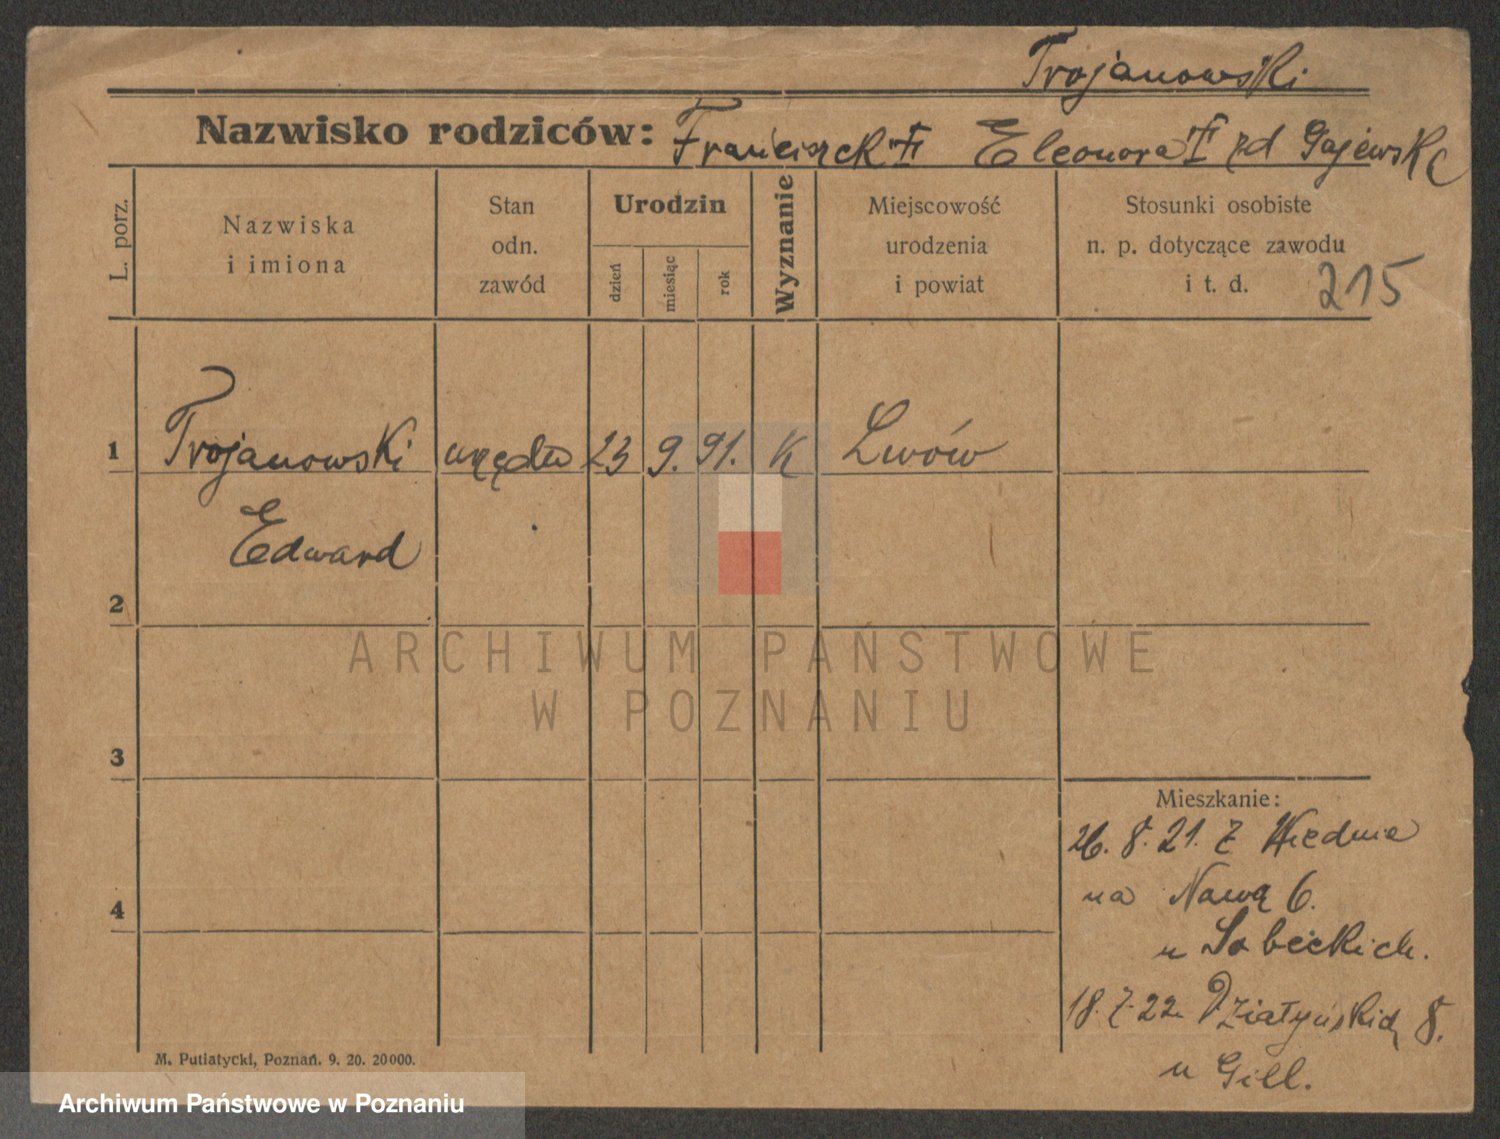 Trojanowski
Nazwisko rodziców: Franciszek Eleonora zd Gajewska
L. porz.
Nazwiska
i imiona
Stan
odn.
zawód
Urodzin
dzień
miesiąc
rok
Wyznanie
Miejscowość
urodzenia
i powiat
Stosunki osobiste
n. p. dotyczące zawodu
i t. d.
215
1 Trojanowski 23 9. 91. K Lwów
Edward
2
3
4
ARCHIWUM PAŃSTWOWE
W POZNANIU
Mieszkanie:
26. 8. 21. z Wiednia
na Nową 6.
u Sobeckich.
18. 7. 22. Działyńskich 8.
u Gill.
M. Putiatycki, Poznań. 9. 20. 20000.
Archiwum Państwowe w Poznaniu